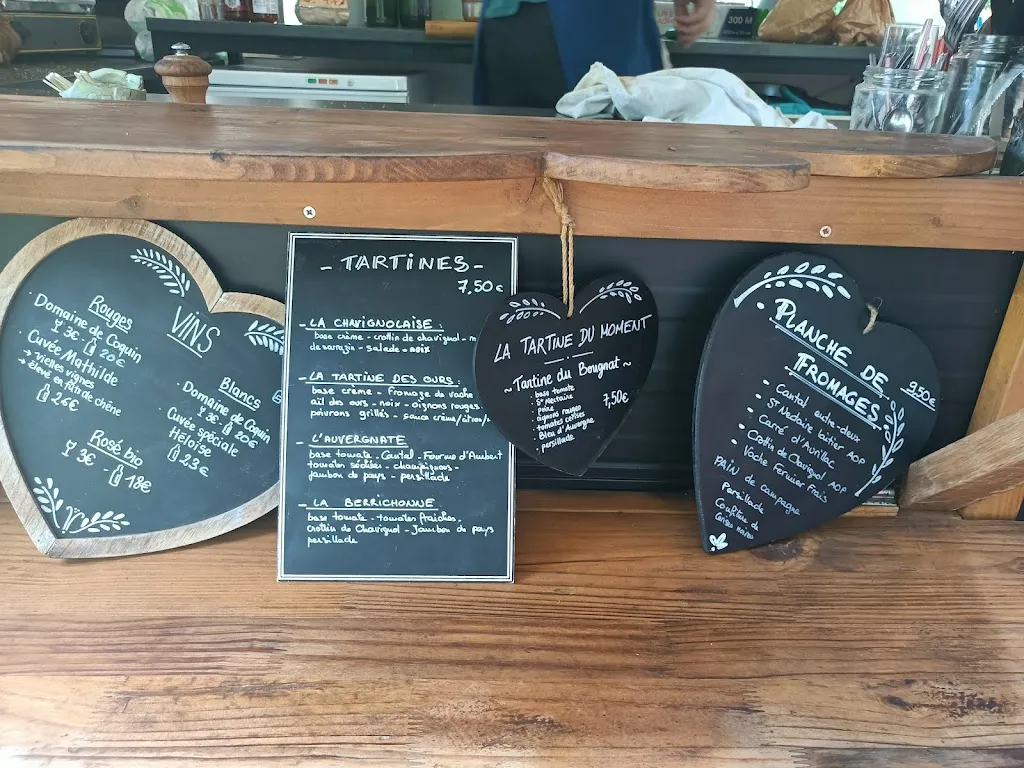 VINS
Rouges
Domaine de Coquin
3€ - 20€
Cuvée Mathilde
→ vieilles vignes
→ élevé en fût de chêne
26€
Rosé bio
3€ - 18€
Blancs
Domaine de Coquin
3€ - 20€
Cuvée spéciale
Héloïse
23€
- TARTINES -
7,50€
- LA CHAVIGNOLAISE :
base crème - crottin de chavignol -
de sarrazin - salade - noix
- LA TARTINE DES OURS :
base crème - fromage de vache
ail des ours - noix - oignons rouges
poivrons grillés -
- L'AUVERGNATE
base tomate - Cantal - Fourme d'Ambert
tomates séchées - champignons -
jambon de pays - persillade
- LA BERRICHONNE
base tomate - tomates fraîches -
Crottin de Chavignol - Jambon de pays
persillade
LA TARTINE DU MOMENT
~ Tartine du Bougnat ~
7,50€
• base tomate
• St Nectaire
• Poire
• oignons rouges
• tomates cerises
• Bleu d'Auvergne
• persillade
PLANCHE DE
FROMAGES
9,50€
• Cantal entre-deux
• St Nectaire laitier AOP
• Carré d'Aurillac
• Crottin de Chavignol AOP
• Vache Fermier Frais
PAiN de campagne
Persillade
Confiture de
Cerises noires
300 M